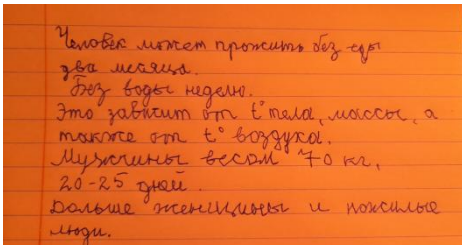 Человек может прожить без еды
два месяца.
Без воды неделю.
Это зависит от t° тела, массы, а
также от t° воздуха.
Мужчины весом 70 кг,
20-25 дней.
Дольше женщины и пожилые
люди.